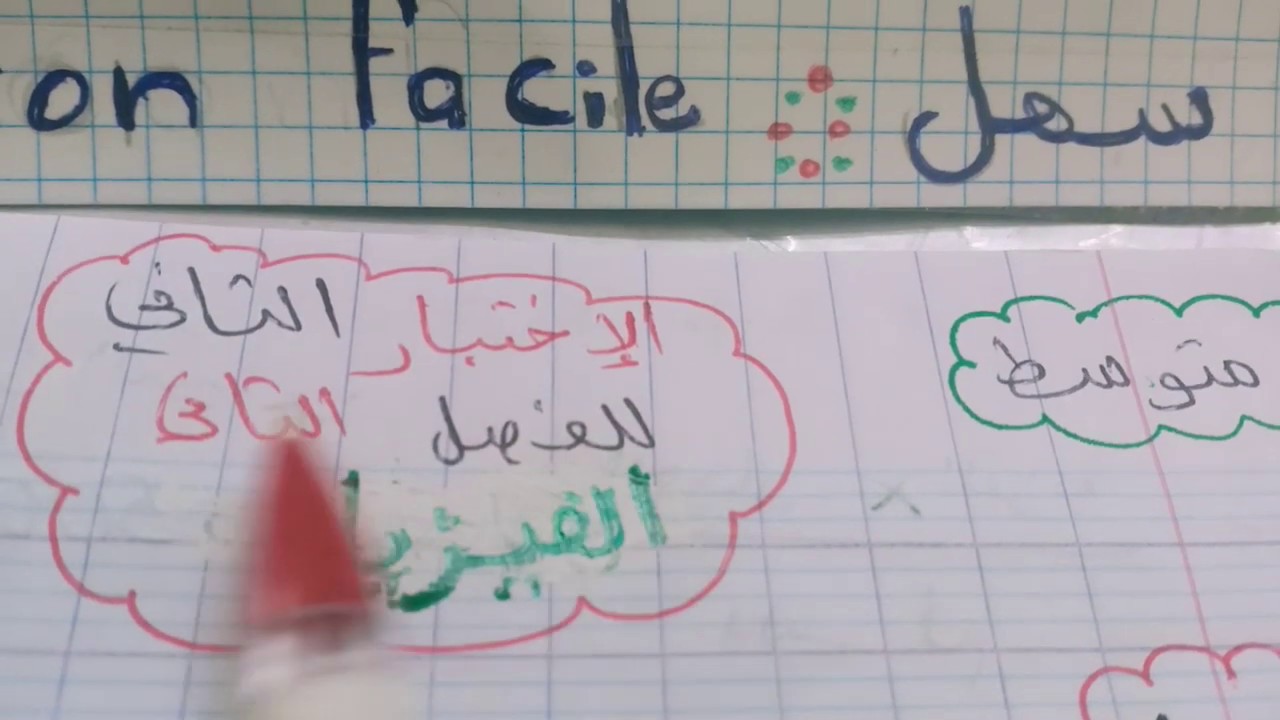 on facile سهل
الإختبار الثاني
للفصل الثاني
متوسط